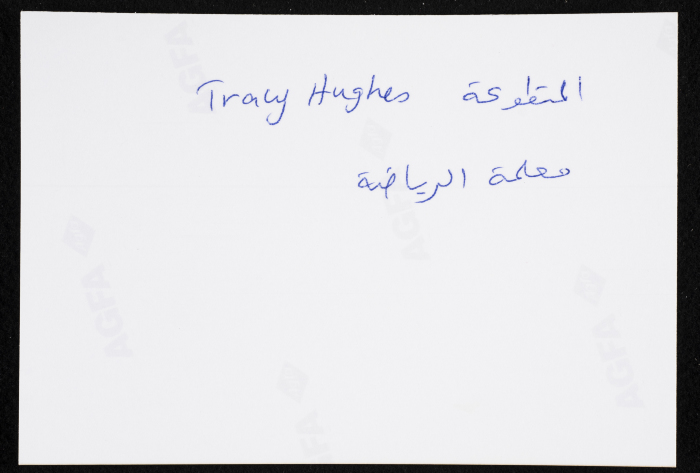 المتطوعة Tracy Hughes
معلمة الرياضة
AGFA
AGFA
AGFA
AGFA
AGFA